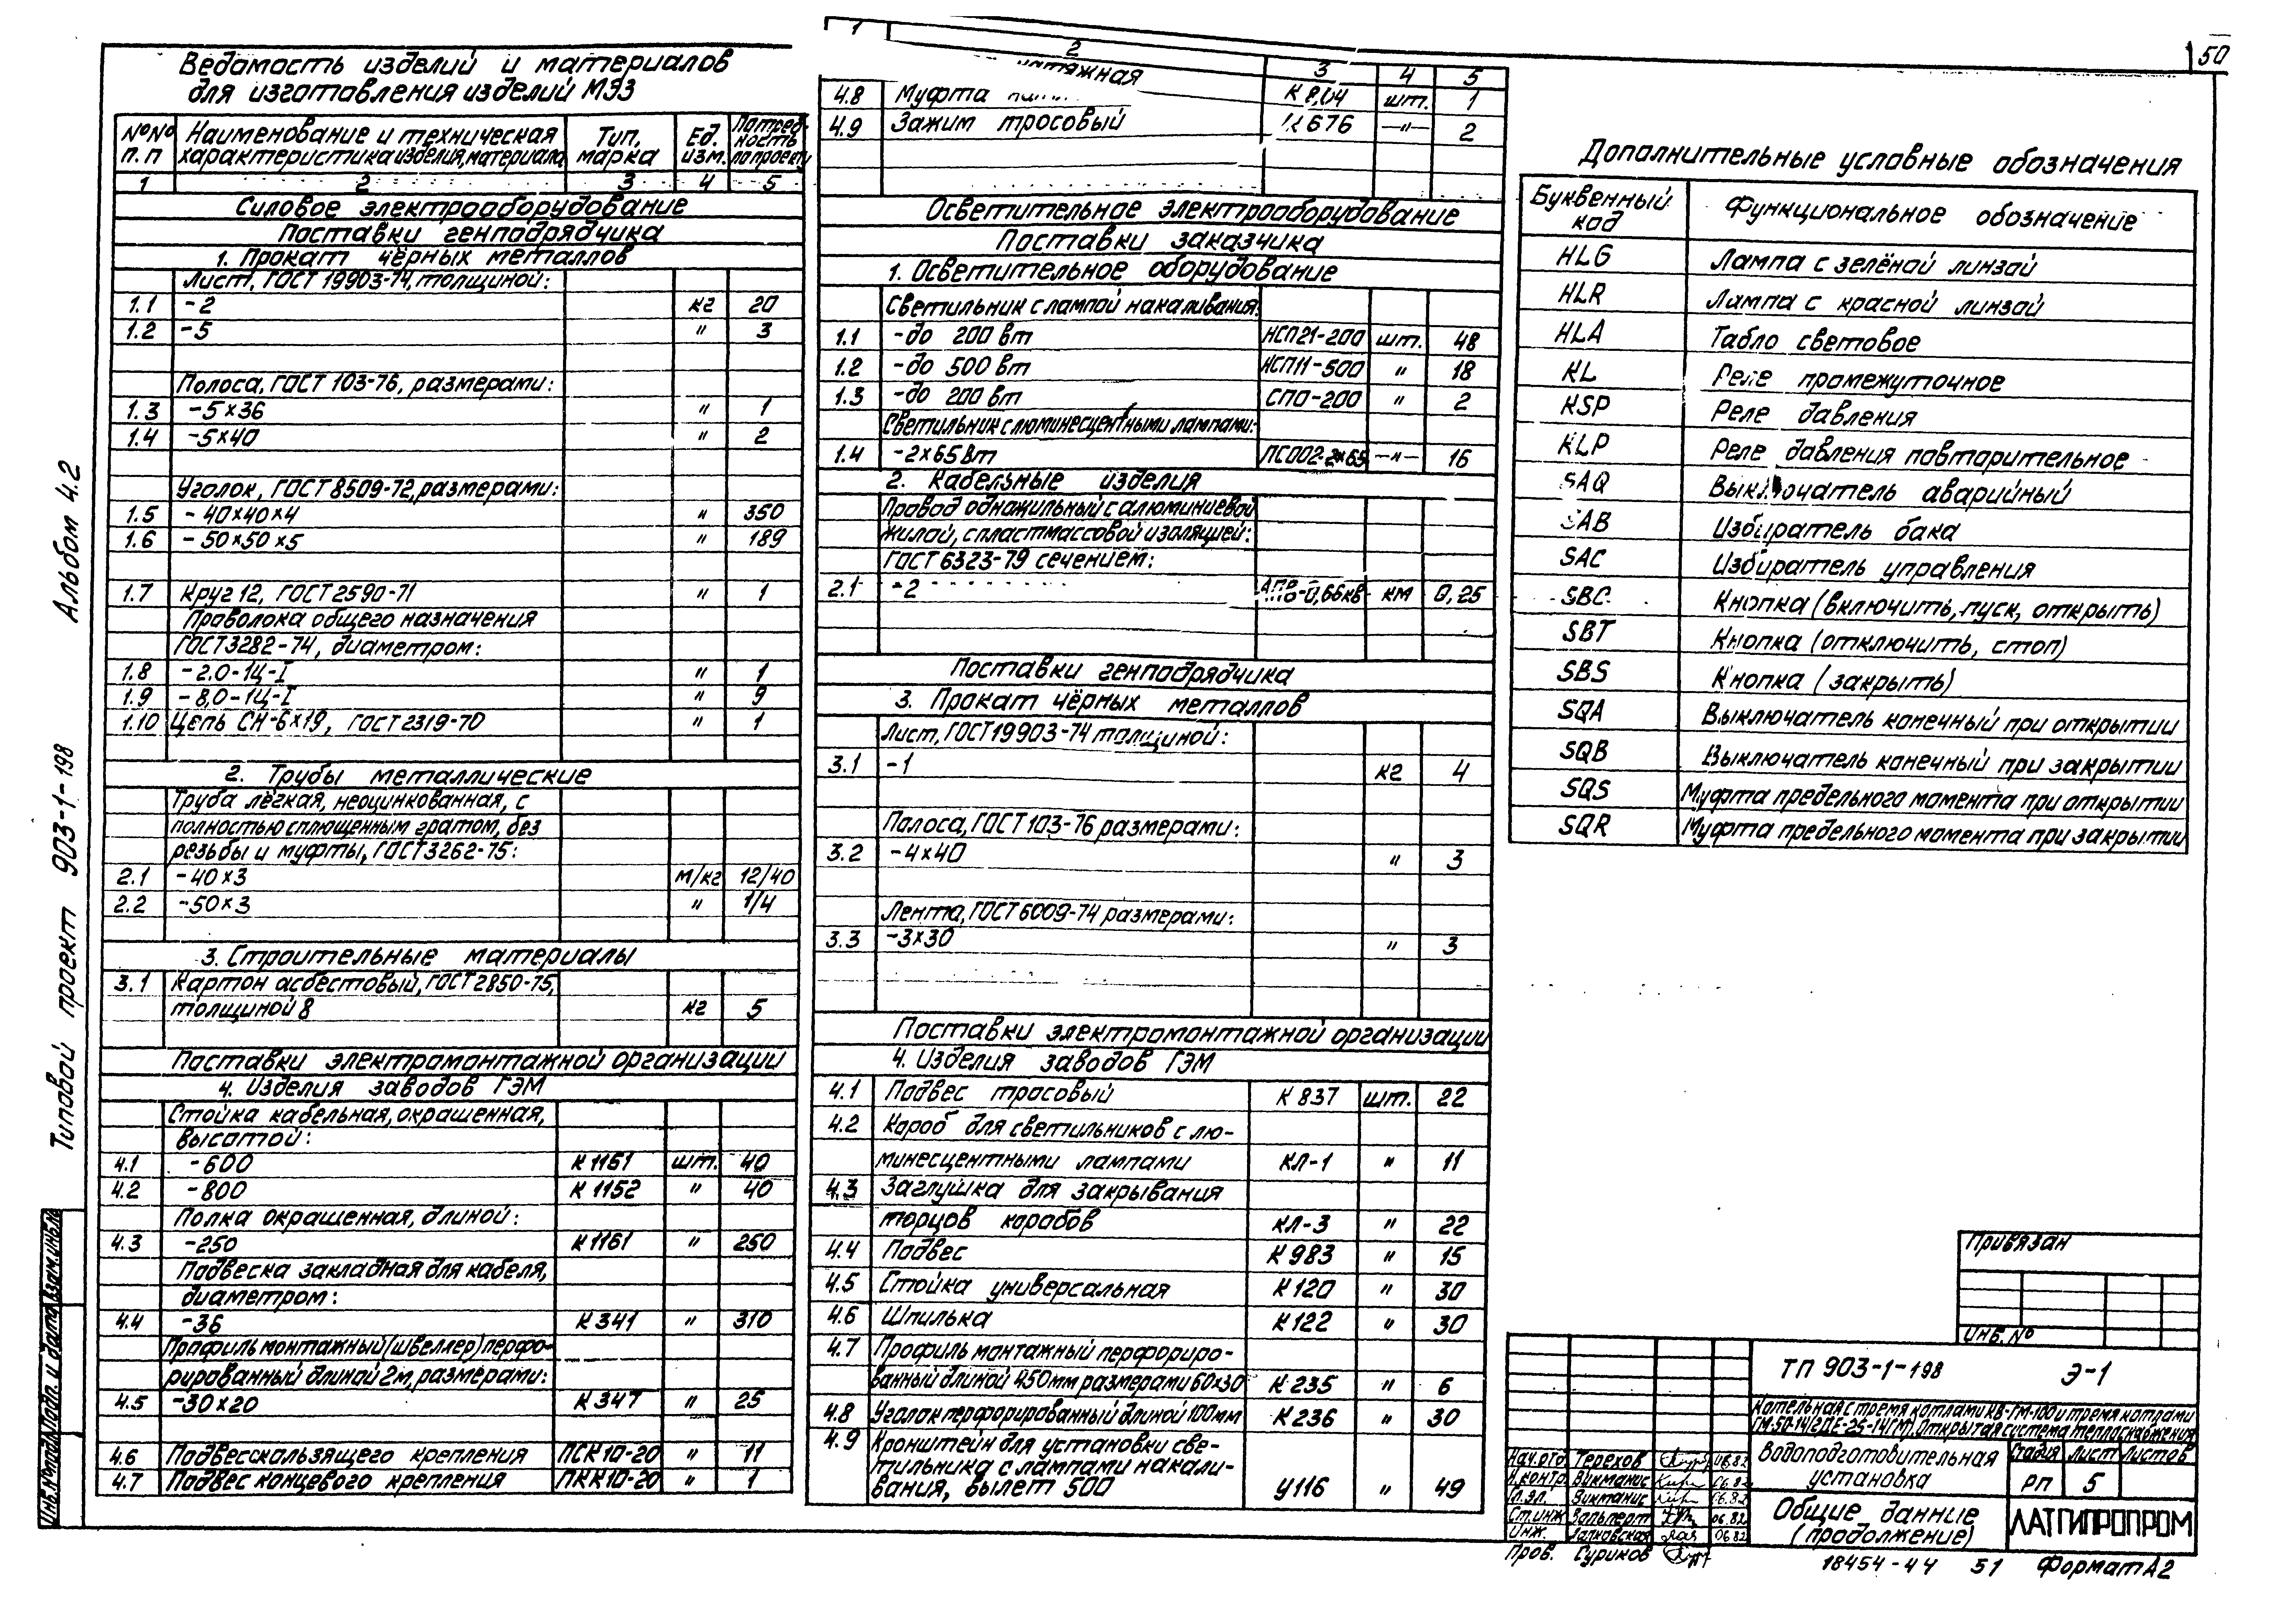 50
Ведомость изделий и материалов
для изготовления изделий МЭЗ
№№ п.п Наименование и техническая характеристика изделия, материала Тип, марка Ед. изм. Потреб-ность по проекту
1 2 3 4 5
Силовое электрооборудование
Поставки генподрядчика
1. Прокат чёрных металлов
Лист, ГОСТ 19903-74, толщиной:
1.1 -2 кг 20
1.2 -5 " 3
Полоса, ГОСТ 103-76, размерами:
1.3 -5×36 " 1
1.4 -5×40 " 2
Уголок, ГОСТ 8509-72, размерами:
1.5 -40×40×4 " 350
1.6 -50×50×5 " 189
1.7 Круг 12, ГОСТ 2590-71 " 1
Проволока общего назначения
ГОСТ 3282-74, диаметром:
1.8 -2.0-1Ц-I " 1
1.9 -8,0-1Ц-I " 9
1.10 Цепь СН-6×19, ГОСТ 2319-70 " 1
2. Трубы металлические
Труба лёгкая, неоцинкованная, с
полностью сплющенным гратом, без
резьбы и муфты, ГОСТ 3262-75:
2.1 -40×3 м/кг 12/40
2.2 -50×3 " 1/4
3. Строительные материалы
3.1 Картон асбестовый, ГОСТ 2850-75,
толщиной 8 кг 5
Поставки электромонтажной организации
4. Изделия заводов ГЭМ
Стойка кабельная, окрашенная,
высотой:
4.1 -600 К 1151 шт. 40
4.2 -800 К 1152 " 40
Полка окрашенная, длиной:
4.3 -250 К 1161 " 250
Подвеска закладная для кабеля,
диаметром:
4.4 -36 К 341 " 310
Профиль монтажный (швеллер) перфо-
рированный длиной 2м, размерами:
4.5 -30×20 К 347 " 25
4.6 Подвес скользящего крепления ПСК10-20 " 11
4.7 Подвес концевого крепления ПКК10-20 " 1
1 2 3 4 5
4.8 Муфта натяжная К 804 шт. 1
4.9 Зажим тросовый К 676 —"— 2
Осветительное электрооборудование
Поставки заказчика
1. Осветительное оборудование
Светильник с лампой накаливания:
1.1 -до 200 вт НСП21-200 шт. 48
1.2 -до 500 вт НСП11-500 " 18
1.3 -до 200 вт СПО-200 " 2
Светильник с люминесцентными лампами:
1.4 -2×65 вт ЛСО02-2×65 —"— 16
2. Кабельные изделия
Провод одножильный с алюминиевой
жилой, с пластмассовой изоляцией:
ГОСТ 6323-79 сечением:
2.1 -2 АПВ-0,66кв км 0,25
Поставки генподрядчика
3. Прокат чёрных металлов
Лист, ГОСТ 19903-74 толщиной:
3.1 -1 кг 4
Полоса, ГОСТ 103-76 размерами:
3.2 -4×40 " 3
Лента, ГОСТ 6009-74 размерами:
3.3 -3×30 " 3
Поставки электромонтажной организации
4. Изделия заводов ГЭМ
4.1 Подвес тросовый К 837 шт. 22
4.2 Короб для светильников с лю-
минесцентными лампами КЛ-1 " 11
4.3 Заглушка для закрывания
торцов коробов КЛ-3 " 22
4.4 Подвес К 983 " 15
4.5 Стойка универсальная К 120 " 30
4.6 Шпилька К 122 " 30
4.7 Профиль монтажный перфориро-
ванный длиной 450мм размерами 60×30 К 235 " 6
4.8 Уголок перфорированный длиной 100мм К 236 " 30
4.9 Кронштейн для установки све-
тильника с лампами накали-
вания, вылет 500 У116 " 49
Дополнительные условные обозначения
Буквенный код Функциональное обозначение
HLG Лампа с зелёной линзой
HLR Лампа с красной линзой
HLA Табло световое
KL Реле промежуточное
KSP Реле давления
KLP Реле давления повторительное
SAQ Выключатель аварийный
SAB Избиратель бака
SAC Избиратель управления
SBC Кнопка (включить, пуск, открыть)
SBT Кнопка (отключить, стоп)
SBS Кнопка (закрыть)
SQA Выключатель конечный при открытии
SQB Выключатель конечный при закрытии
SQS Муфта предельного момента при открытии
SQR Муфта предельного момента при закрытии
Типовой проект 903-1-198 Альбом 4.2
Инв.№подл. Подп. и дата Взам.инв.№
Привязан
Инв. №
ТП 903-1-198 Э-1
Котельная с тремя котлами КВ-ГМ-100 и тремя котлами
ГМ-50-14(2ДЕ-25-14ГМ). Открытая система теплоснабжения
Водоподготовительная установка
Стадия Лист Листов
РП 5
Общие данные
(продолжение)
ЛАТГИПРОПРОМ
Нач.отд. Терехов 06.82
Н.контр. Викманис 06.82
Гл.эл. Викманис 06.82
Ст.инж. Зальперт 06.82
Инж. 06.82
Пров. Суриков
18454-44 51 Формат А2